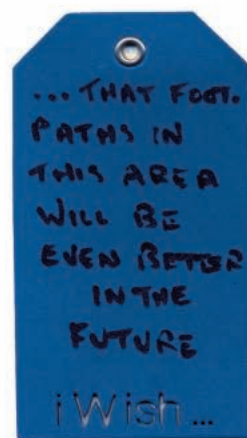 ... THAT FOOT.
PATHS IN
THIS AREA
WILL BE
EVEN BETTER
IN THE
FUTURE
i Wish...